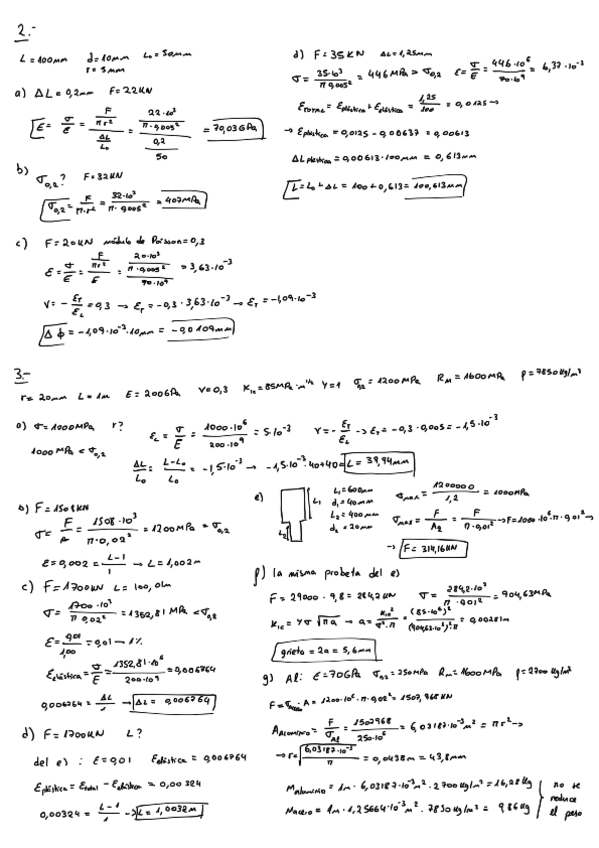 2.-
L = 100mm d = 10mm L₀ = 50mm
r = 5mm
a) ΔL = 0,2mm F = 22KN
E = σ/ε = (F/πr²)/(ΔL/L₀) = (22·10³/π·0,005²)/(0,2/50) = 70,03GPa
b) σ0,2? F = 32KN
σ0,2 = F/π·r² = 32·10³/π·0,005² = 407MPa
c) F = 20KN módulo de Poisson = 0,3
ε = σ/E = (F/πr²)/E = (20·10³/π·0,005²)/70·10⁹ = 3,63·10⁻³
V = - εT/εL = 0,3 → εT = -0,3·3,63·10⁻³ → εT = -1,09·10⁻³
Δϕ = -1,09·10⁻³·10mm = -0,0109mm
d) F = 35KN ΔL = 1,25mm
σ = 35·10³/π·0,005² = 446MPa > σ0,2 ε = σ/E = 446·10⁶/70·10⁹ = 6,37·10⁻³
εTOTAL = εplástica + εelástica = 1,25/100 = 0,0125 →
→ εplástica = 0,0125 - 0,00637 = 0,00613
ΔL plástica = 0,00613·100mm = 0,613mm
L = L₀ + ΔL = 100 + 0,613 = 100,613mm
3.-
r = 20mm L = 1m E = 200GPa V = 0,3 K1c = 85MPa·m^1/2 Y = 1 σ0,2 = 1200MPa RM = 1600MPa ρ = 7850Kg/m³
a) σ = 1000MPa r?
1000MPa < σ0,2
εL = σ/E = 1000·10⁶/200·10⁹ = 5·10⁻³ V = - εT/εL → εT = -0,3·0,005 = -1,5·10⁻³
ΔL/L₀ = L-L₀/L₀ = -1,5·10⁻³ → -1,5·10⁻³·40+40 = L = 39,94mm
b) F = 1508KN
σ = F/A = 1508·10³/π·0,02² = 1200MPa = σ0,2
ε = 0,002 = L-1/1 → L = 1,002m
c) F = 1700KN
σ = 1700·10³/π·0,02² = 1352,81MPa
ε = 0,01/1,00 = 0,01 → 1%
εelástica = σ/E = 1352,81·10⁶/200·10⁹ = 0,006764
0,006764 = ΔL/1 → ΔL = 0,006764
d) F = 1700KN L?
del e) : ε = 0,01 εelástica = 0,006764
εplástica = εtotal - εelástica = 0,00324
0,00324 = L-1/1 → L = 1,0032m
e)
L₁
L₂
L₁ = 600mm
d₁ = 40mm
L₂ = 400mm
d₂ = 20mm
σmax = 1200000/1,2 = 1000MPa
σmax = F/A₂ = F/π·0,01² → F = 1000·10⁶·π·0,01² →
→ F = 314,16KN
f) la misma probeta del e)
F = 29000·9,8 = 284,2KN σ = 284,2·10³/π·0,01² = 904,63MPa
K1c = Yσ√πa → a = K1c²/σ²·π = (85·10⁶)²/(904,63·10⁶)²π = 0,00281m
grieta = 2a = 5,6mm
g) Al: E = 70GPa σ0,2 = 250MPa Rm = 1600MPa ρ = 2700Kg/m³
A = 1200·10⁶·π·0,02² = 1507,968KN
Aaluminio = F/σAl = 1507968/250·10⁶ = 6,03187·10⁻³m² = πr² →
→ r = √6,03187·10⁻³/π = 0,0438m = 43,8mm
Maluminio = 1m·6,03187·10⁻³m²·2700Kg/m³ = 16,28Kg
Macero = 1m·1,25664·10⁻³m²·7850Kg/m³ = 9,86Kg
no se
reduce
el peso